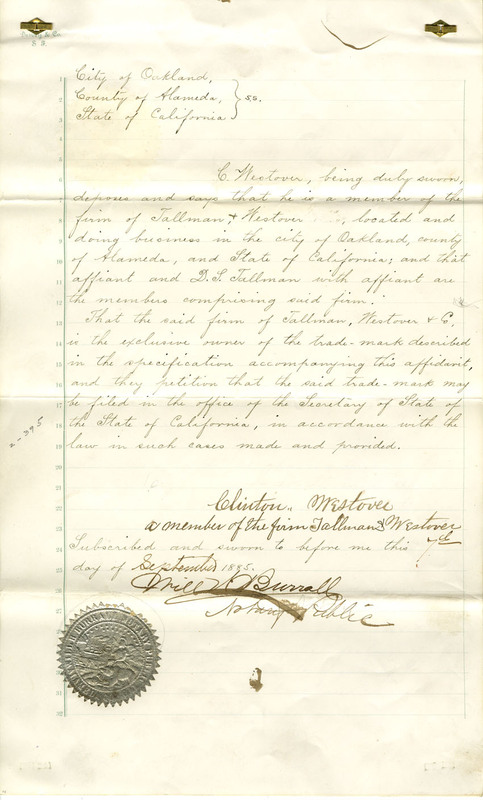 City of Oakland,
County of Alameda, } ss.
State of California
C. Westover, being duly sworn,
deposes and says that he is a member of the
firm of Tallman & Westover located and
doing business in the city of Oakland, county
of Alameda, and State of California; and that
affiant and D. S. Tallman with affiant are
the members comprising said firm.
That the said firm of Tallman, Westover & Co.
is the exclusive owner of the trade-mark described
in the specification accompanying this affidavit,
and they petition that the said trade-mark may
be filed in the office of the Secretary of State of
the State of California, in accordance with the
law in such cases made and provided.
Clinton Westover
a member of the firm Tallman & Westover
Subscribed and sworn to before me this 7th
day of September 1885.
Burrall
Notary Public
1
2
3
6
7
8
9
10
11
12
13
14
15
16
17
18
19
20
21
22
23
24
25
26
27
31
32